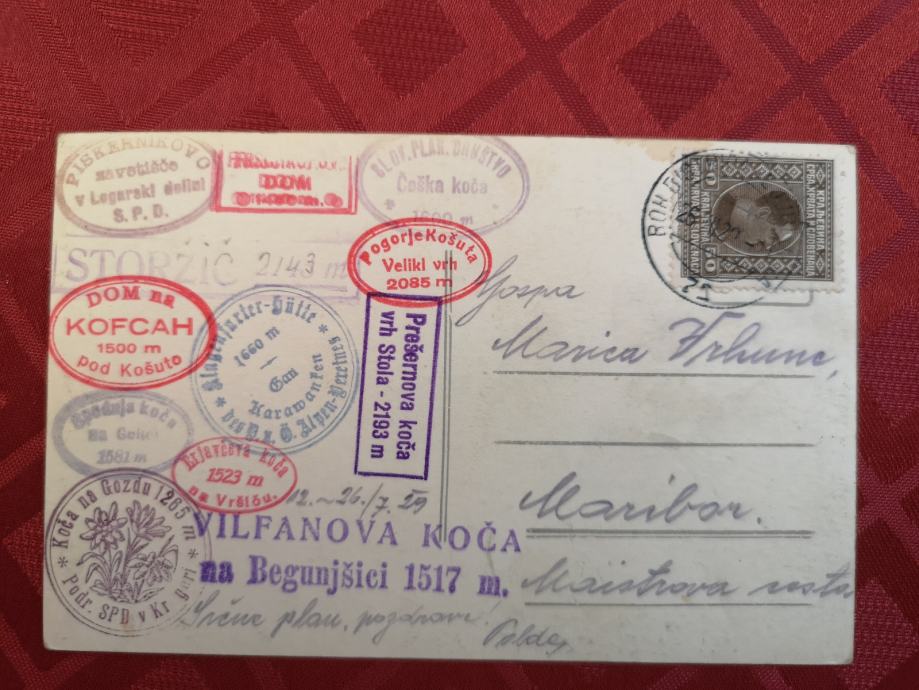 PISKERNIKOVO
zavetišče
v Logarski dolini
S. P. D.
DOM
SLOV. PLAN. DRUŠTVO
Češka koča
1600 m
STORŽIČ 2143 m
Pogorje Košuta
Veliki vrh
2085 m
DOM na
KOFCAH
1500 m
pod Košuto
Klagenfurter-Hütte
1660 m
Gau
Karawanken
des D. u. Ö. Alpen-Vereines
Prešernova koča
vrh Stola - 2193 m
Spodnja koča
na Golici
1581 m
Erjavčeva koča
1523 m
na Vršiču.
12.-26./7. 29
Koča na Gozdu 1265 m
Podr. SPD v Kr. gori
VILFANOVA KOČA
na Begunjšici 1517 m.
Srčne plan. pozdrave!
Polde
КРАЉЕВИНА
СРБА ХРВАТА И СЛОВЕНАЦА
KRALJEVINA
SRBA HRVATA I SLOVENACA
50 50
Gospa
Marica Vrhunc,
Maribor.
Maistrova cesta